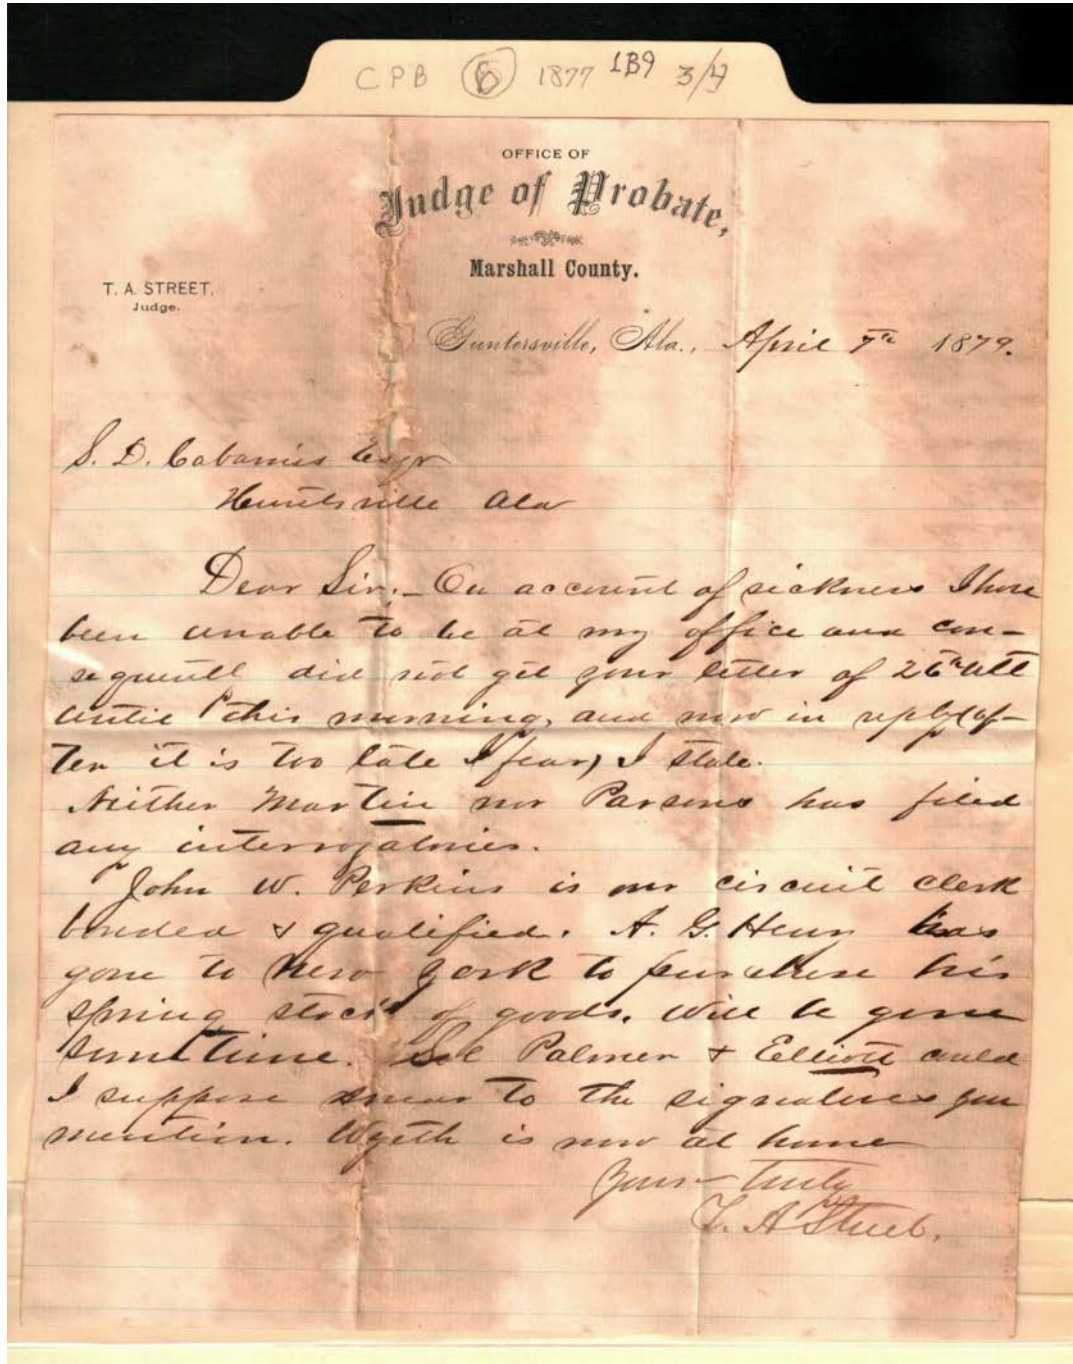 CPB 6 1877 1B9 3/4
OFFICE OF
Judge of Probate,
Marshall County.
T. A. STREET,
Judge.
Guntersville, Ala., April 7th 1879.
S. D. Cabaniss Esqr
Huntsville Ala
Dear Sir:- On account of sickness I have
been unable to be at my office and con-
sequentl did not get your letter of 26th ult
until this morning, and now in reply (af-
ter it is too late I fear) I state.
Neither Martin nor Parsons has filed
any interrogatories.
John W. Perkins is our circuit clerk
bonded & qualified. A. G. Henry has
gone to New York to purchase his
spring stock of goods. Will be gone
sometime. Sol Palmer & Elliott could
I suppose swear to the signatures you
mention. Wyeth is now at home
Yours truly
T. A Street.